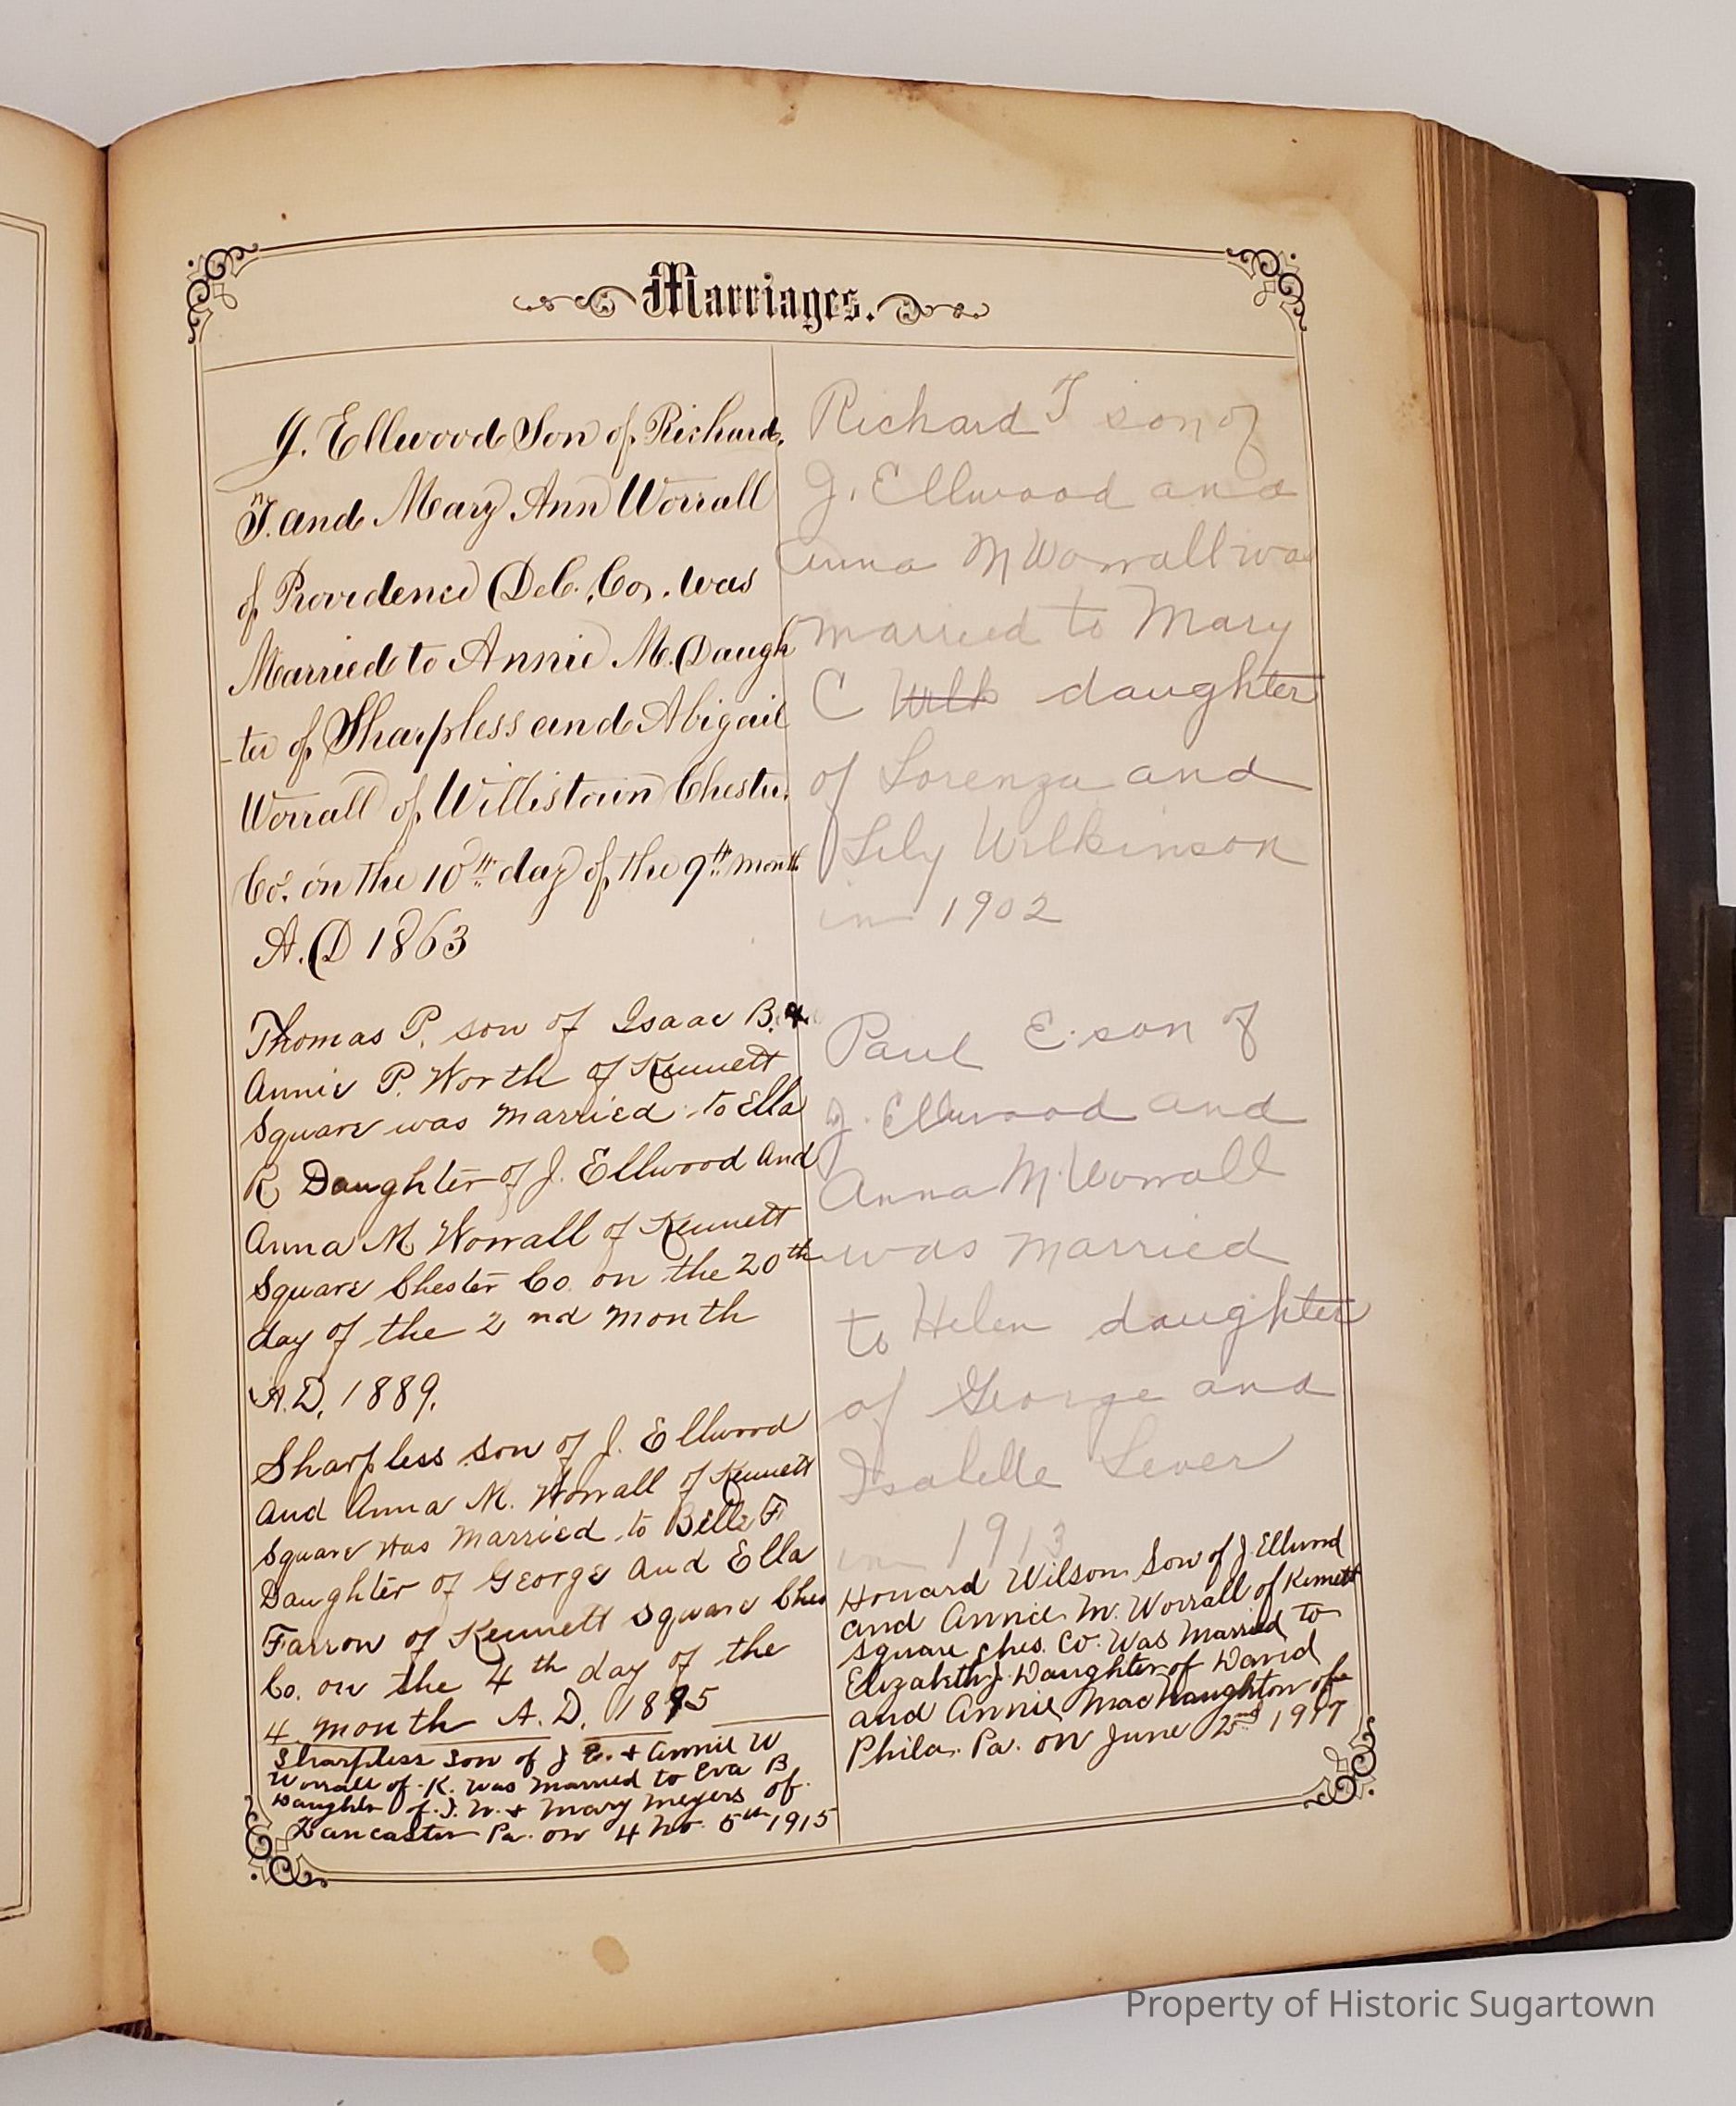 Marriages.
J. Ellwood Son of Richard
T. and Mary Ann Worrall
of Providence Del. Co. was
Married to Annie M. Daugh
-ter of Sharpless and Abigail
Worrall of Willistown Chester
Co. on the 10th day of the 9th month
A.D 1863
Thomas P. son of Isaac B. &
Annie P. Worth of Kennett
Square was married to Ella
R Daughter of J. Ellwood and
Anna M Worrall of Kennett
Square Chester Co. on the 20th
day of the 2nd month
A.D. 1889.
Sharpless son of J. Ellwood
and Anna M. Worrall of Kennett
Square was married to Belle F
Daughter of George and Ella
Farron of Kennett Square Ches
Co. on the 4th day of the
4 month A.D. 1895
Sharpless Son of J E. + Annie W
Worrall of K. was married to Eva B
Daughter of J. W. + Mary Meyers of
Lancaster Pa. on 4 Mo. 5th 1915
Richard T son of
J. Ellwood and
Anna M Worrall was
married to Mary
C Wilk daughter
of Lorenza and
Lily Wilkinson
in 1902
Paul E. son of
J. Ellwood and
Anna M. Worrall
was married
to Helen daughter
of George and
Isabelle Lever
in 1913
Howard Wilson Son of J. Ellwood
and Annie M. Worrall of Kennett
Square Ches. Co. Was Married to
Elizabeth J. Daughter of David
and Annie MacNaughton of
Phila. Pa. on June 2nd 1917
Property of Historic Sugartown